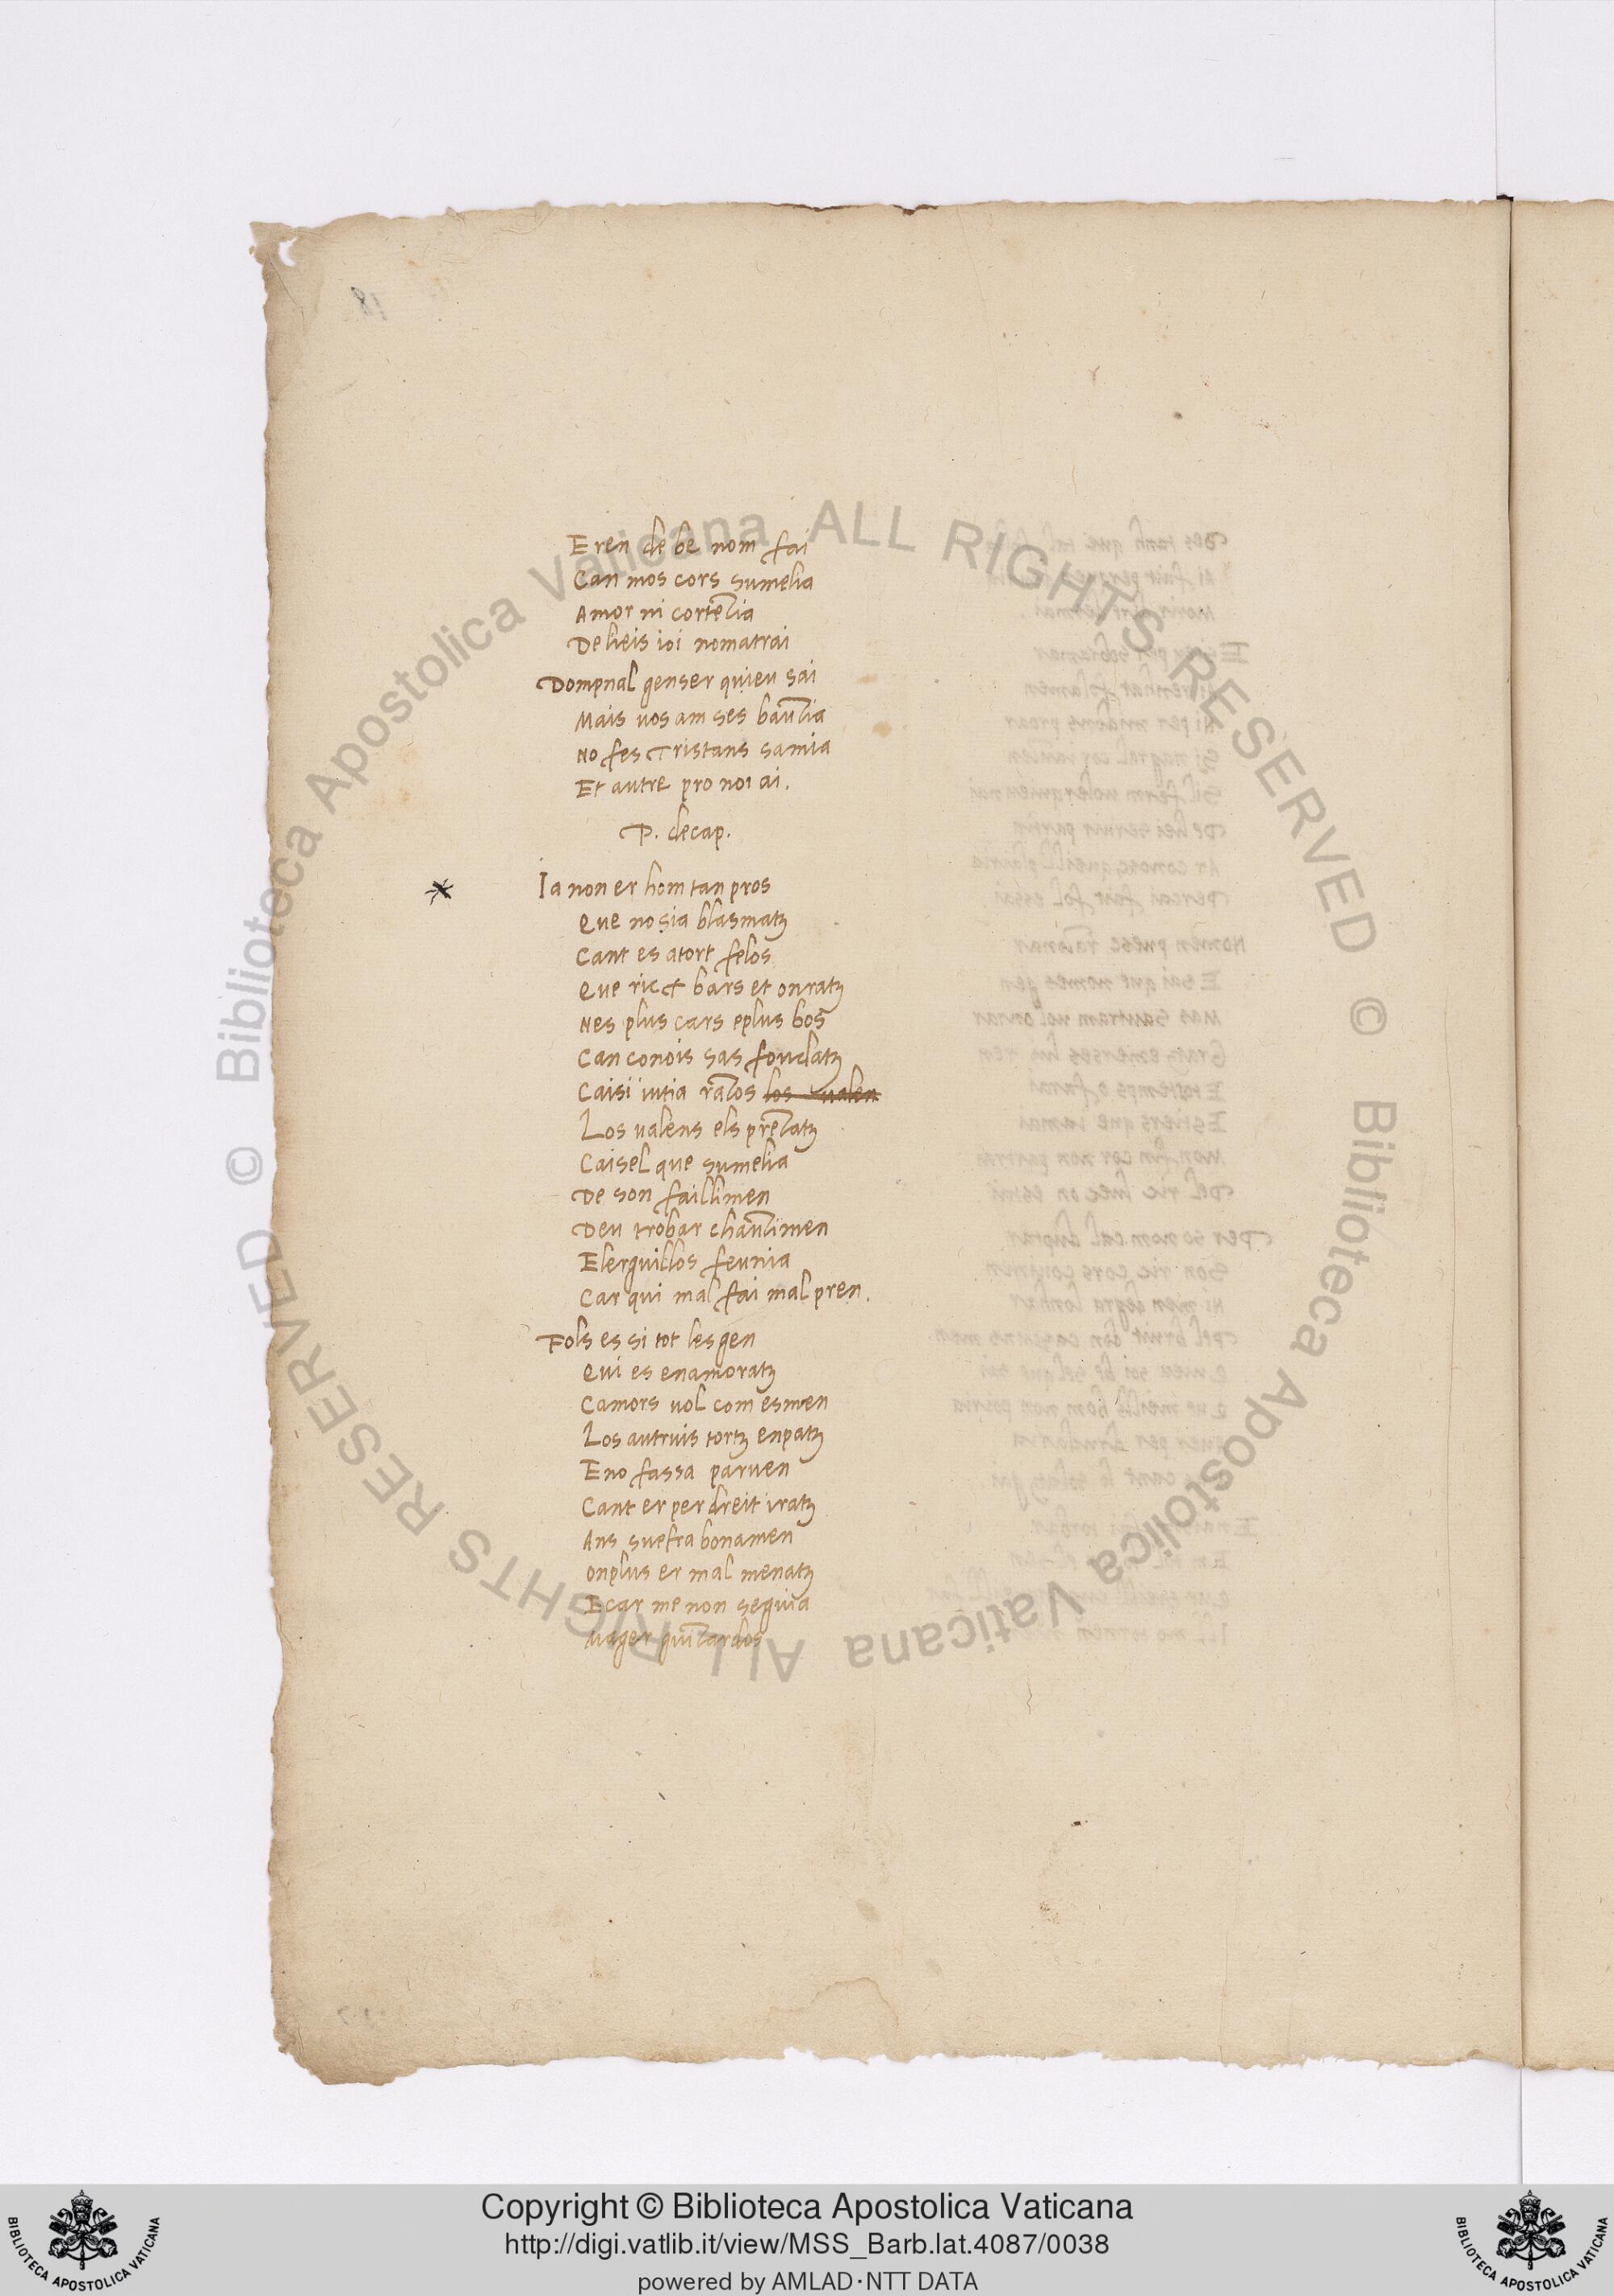 E ren de be nom fai
Can mos cors sumelia
Amor ni cortezia
De lieis ioi nomatrai
Dompnal genser quieu sai
Mais uos am ses bauzia
No fes Tristans samia
Et autre pro noi ai.
P. decap.
Ia non er hom tan pros
Que no sia blasmatz
Cant es atort felos
Que ricx bars et onratz
Nes plus cars eplus bos
Can conois sas foudatz
Caisi iutia razos los ualen
Los ualens els prezatz
Caisel que sumelia
De son faillimen
Deu trobar chauzimen
Elerguillos feunia
Car qui mal fai mal pren.
Fols es si tot lesgen
Qui es enamoratz
Camors uol com esmen
Los autruis tortz enpatz
E no fassa paruen
Cant er per dreit iratz
Ans suefra bonamen
On plus er mal menatz
E car me non seguia
Mager guizardos
Copyright © Biblioteca Apostolica Vaticana
http://digi.vatlib.it/view/MSS_Barb.lat.4087/0038
powered by AMLAD·NTT DATA
© Biblioteca Apostolica Vaticana ALL RIGHTS RESERVED
© Biblioteca Apostolica Vaticana ALL RIGHTS RESERVED
BIBLIOTECA APOSTOLICA VATICANA
BIBLIOTECA APOSTOLICA VATICANA